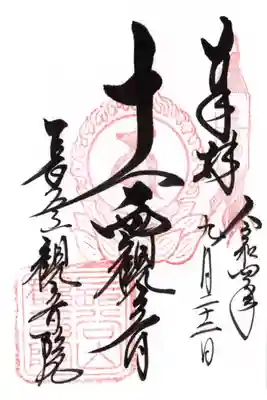 奉拝 令和四年
九月二十二日
十一面觀音
觀音院